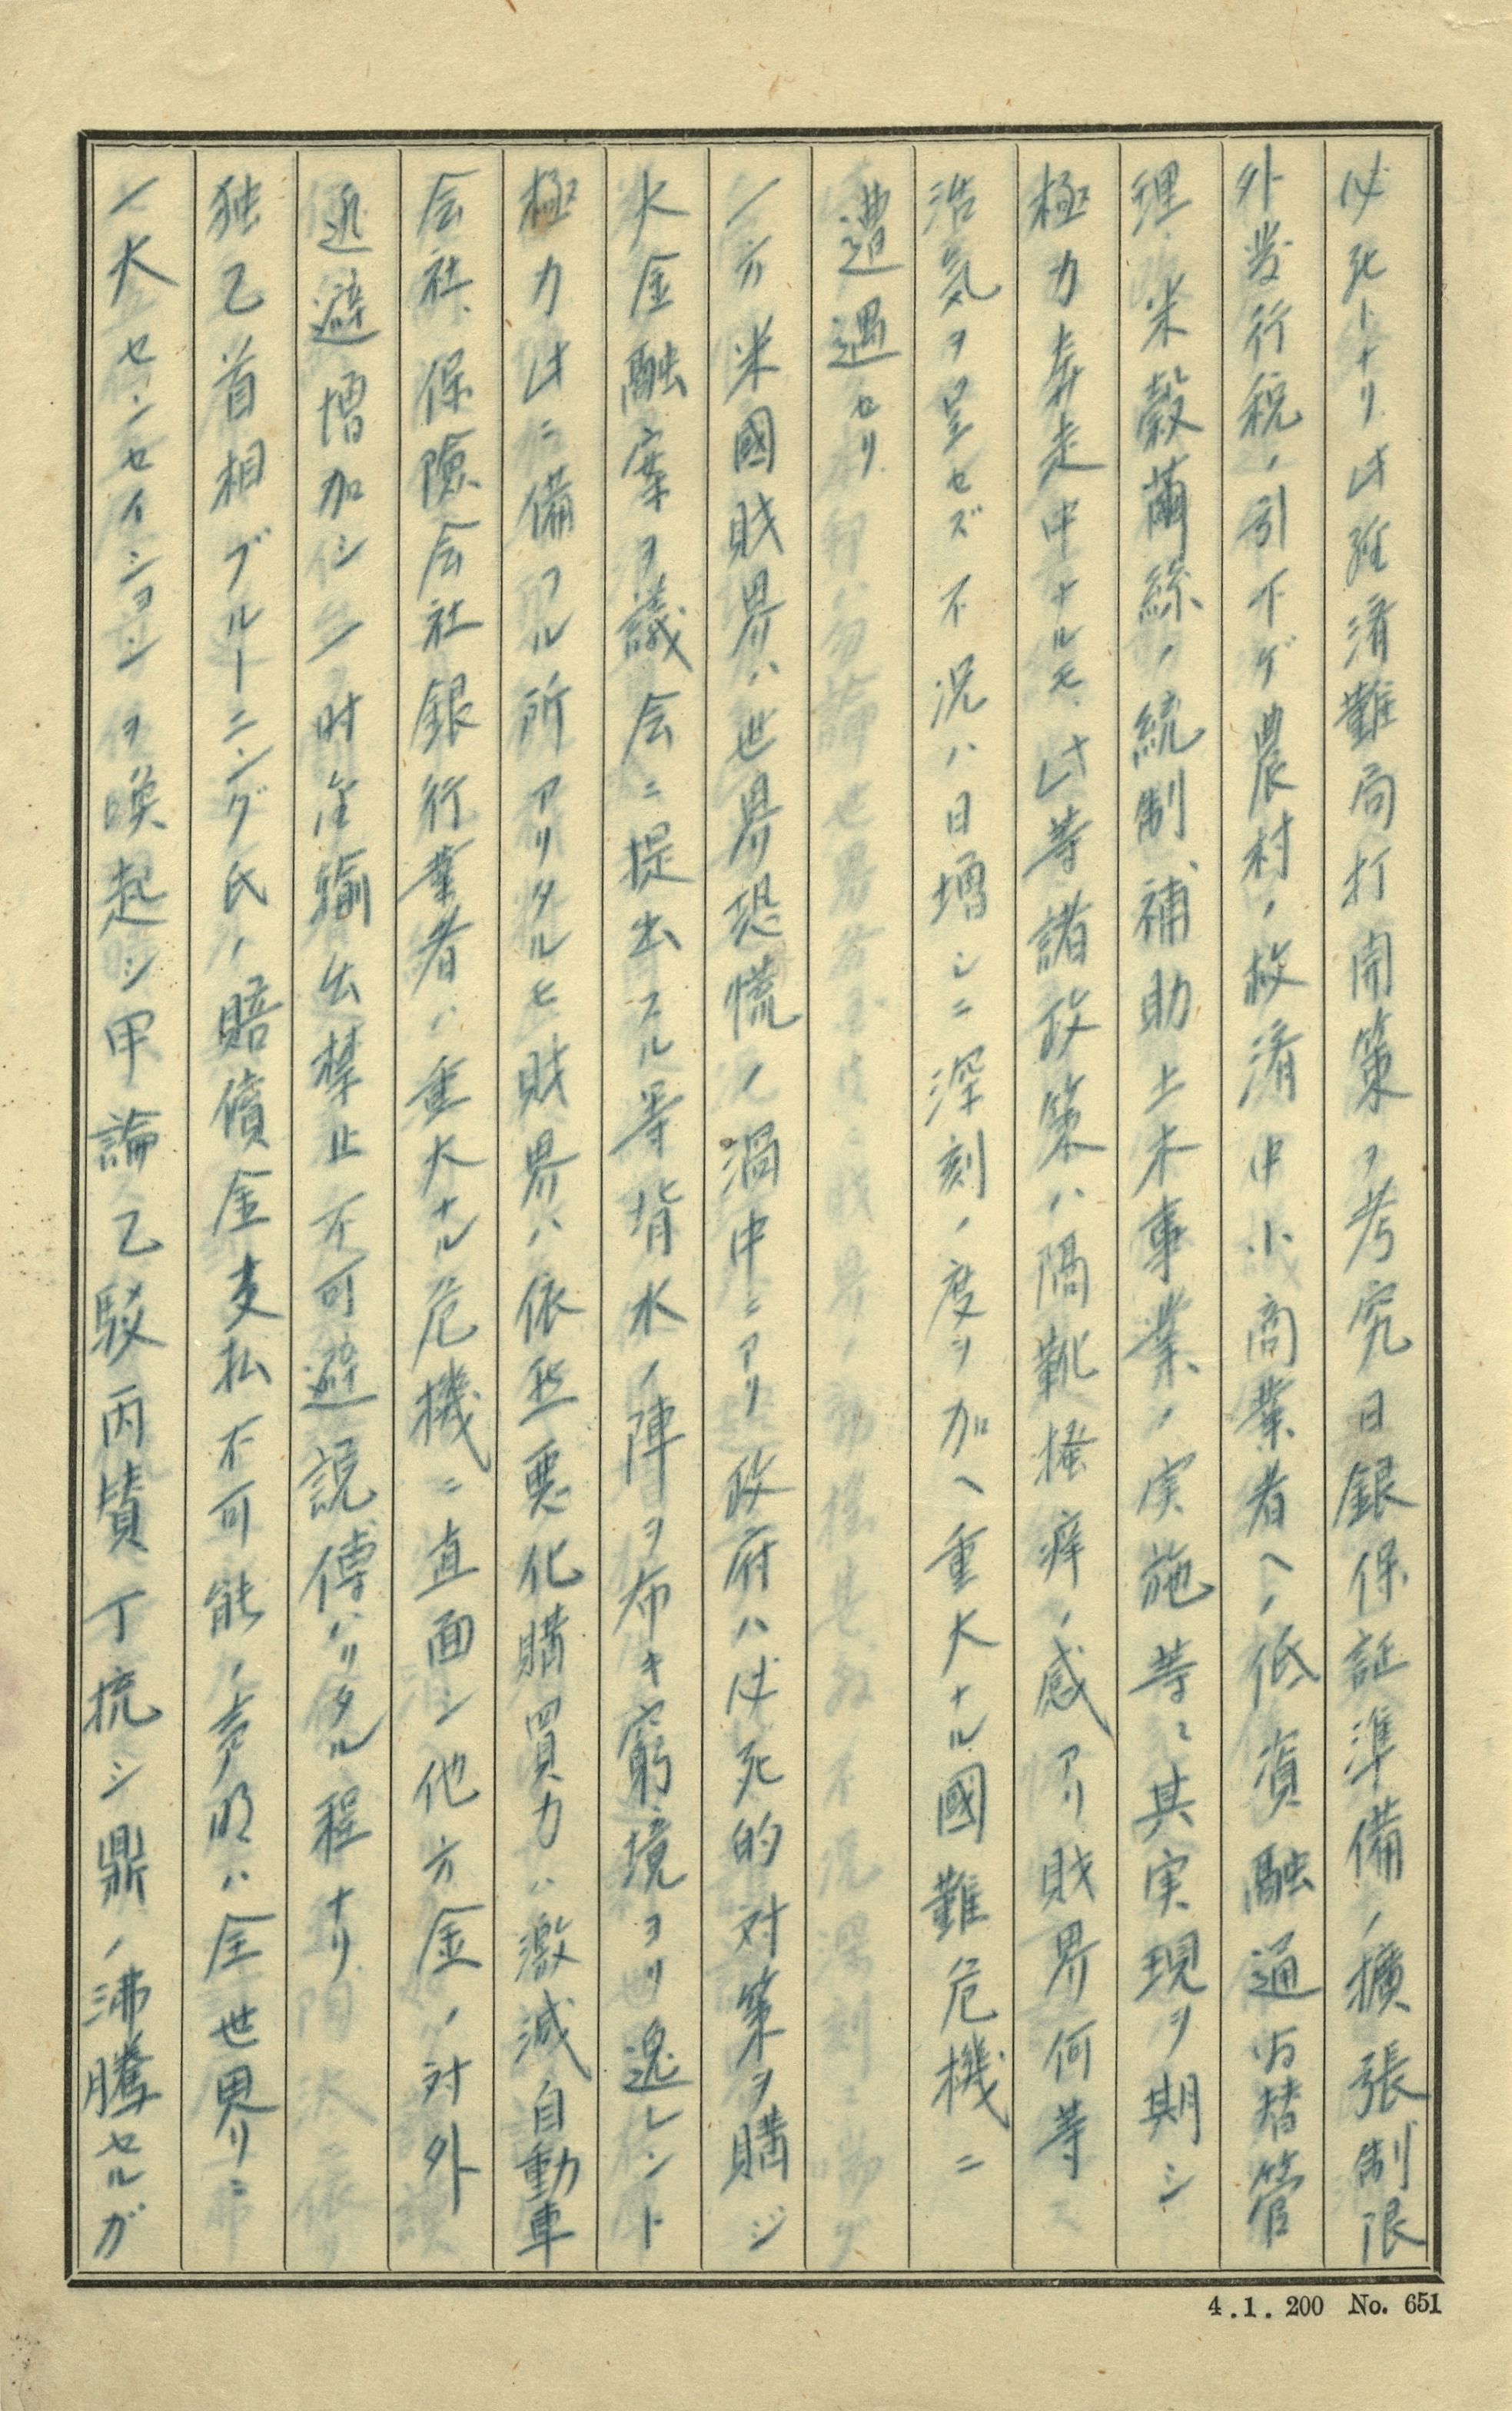 必死トナリ此経済難局打開策ヲ考究日銀保証準備ノ擴張制限
外発行税ノ引下ゲ農村ノ救済中小商業者ヘノ低資融通為替管
理米穀繭絲ノ統制補助土木事業ノ実施等々其実現ヲ期シ
極力奔走中ナルモ此等諸政策ハ隔靴掻痒ノ感アリ財界何等
活気ヲ呈セズ不況ハ日増シニ深刻ノ度ヲ加ヘ重大ナル國難危機ニ
遭遇セリ
一方米國財界ハ世界恐慌ノ渦中ニアリ政府ハ必死的対策ヲ購ジ
大金融案ヲ議会ニ提出スル等背水ノ陣ヲ布キ窮境ヨリ逸レント
極力此ニ備フル所アリタルモ財界ハ依然悪化購買力ハ激減自動車
会社、保険会社銀行業者ハ重大ナル危機ニ直面シ他方金ノ対外
逃避増加シ一時金輸出禁止不可避説傳ハリタル程ナリ
独乙首相ブルーニング氏ノ賠償金支払不可能ノ声明ハ全世界ニ
一大センセイションヲ喚起シ甲論乙駁丙賛丁抗シ鼎ノ沸騰セルガ
4.1.200 No. 651